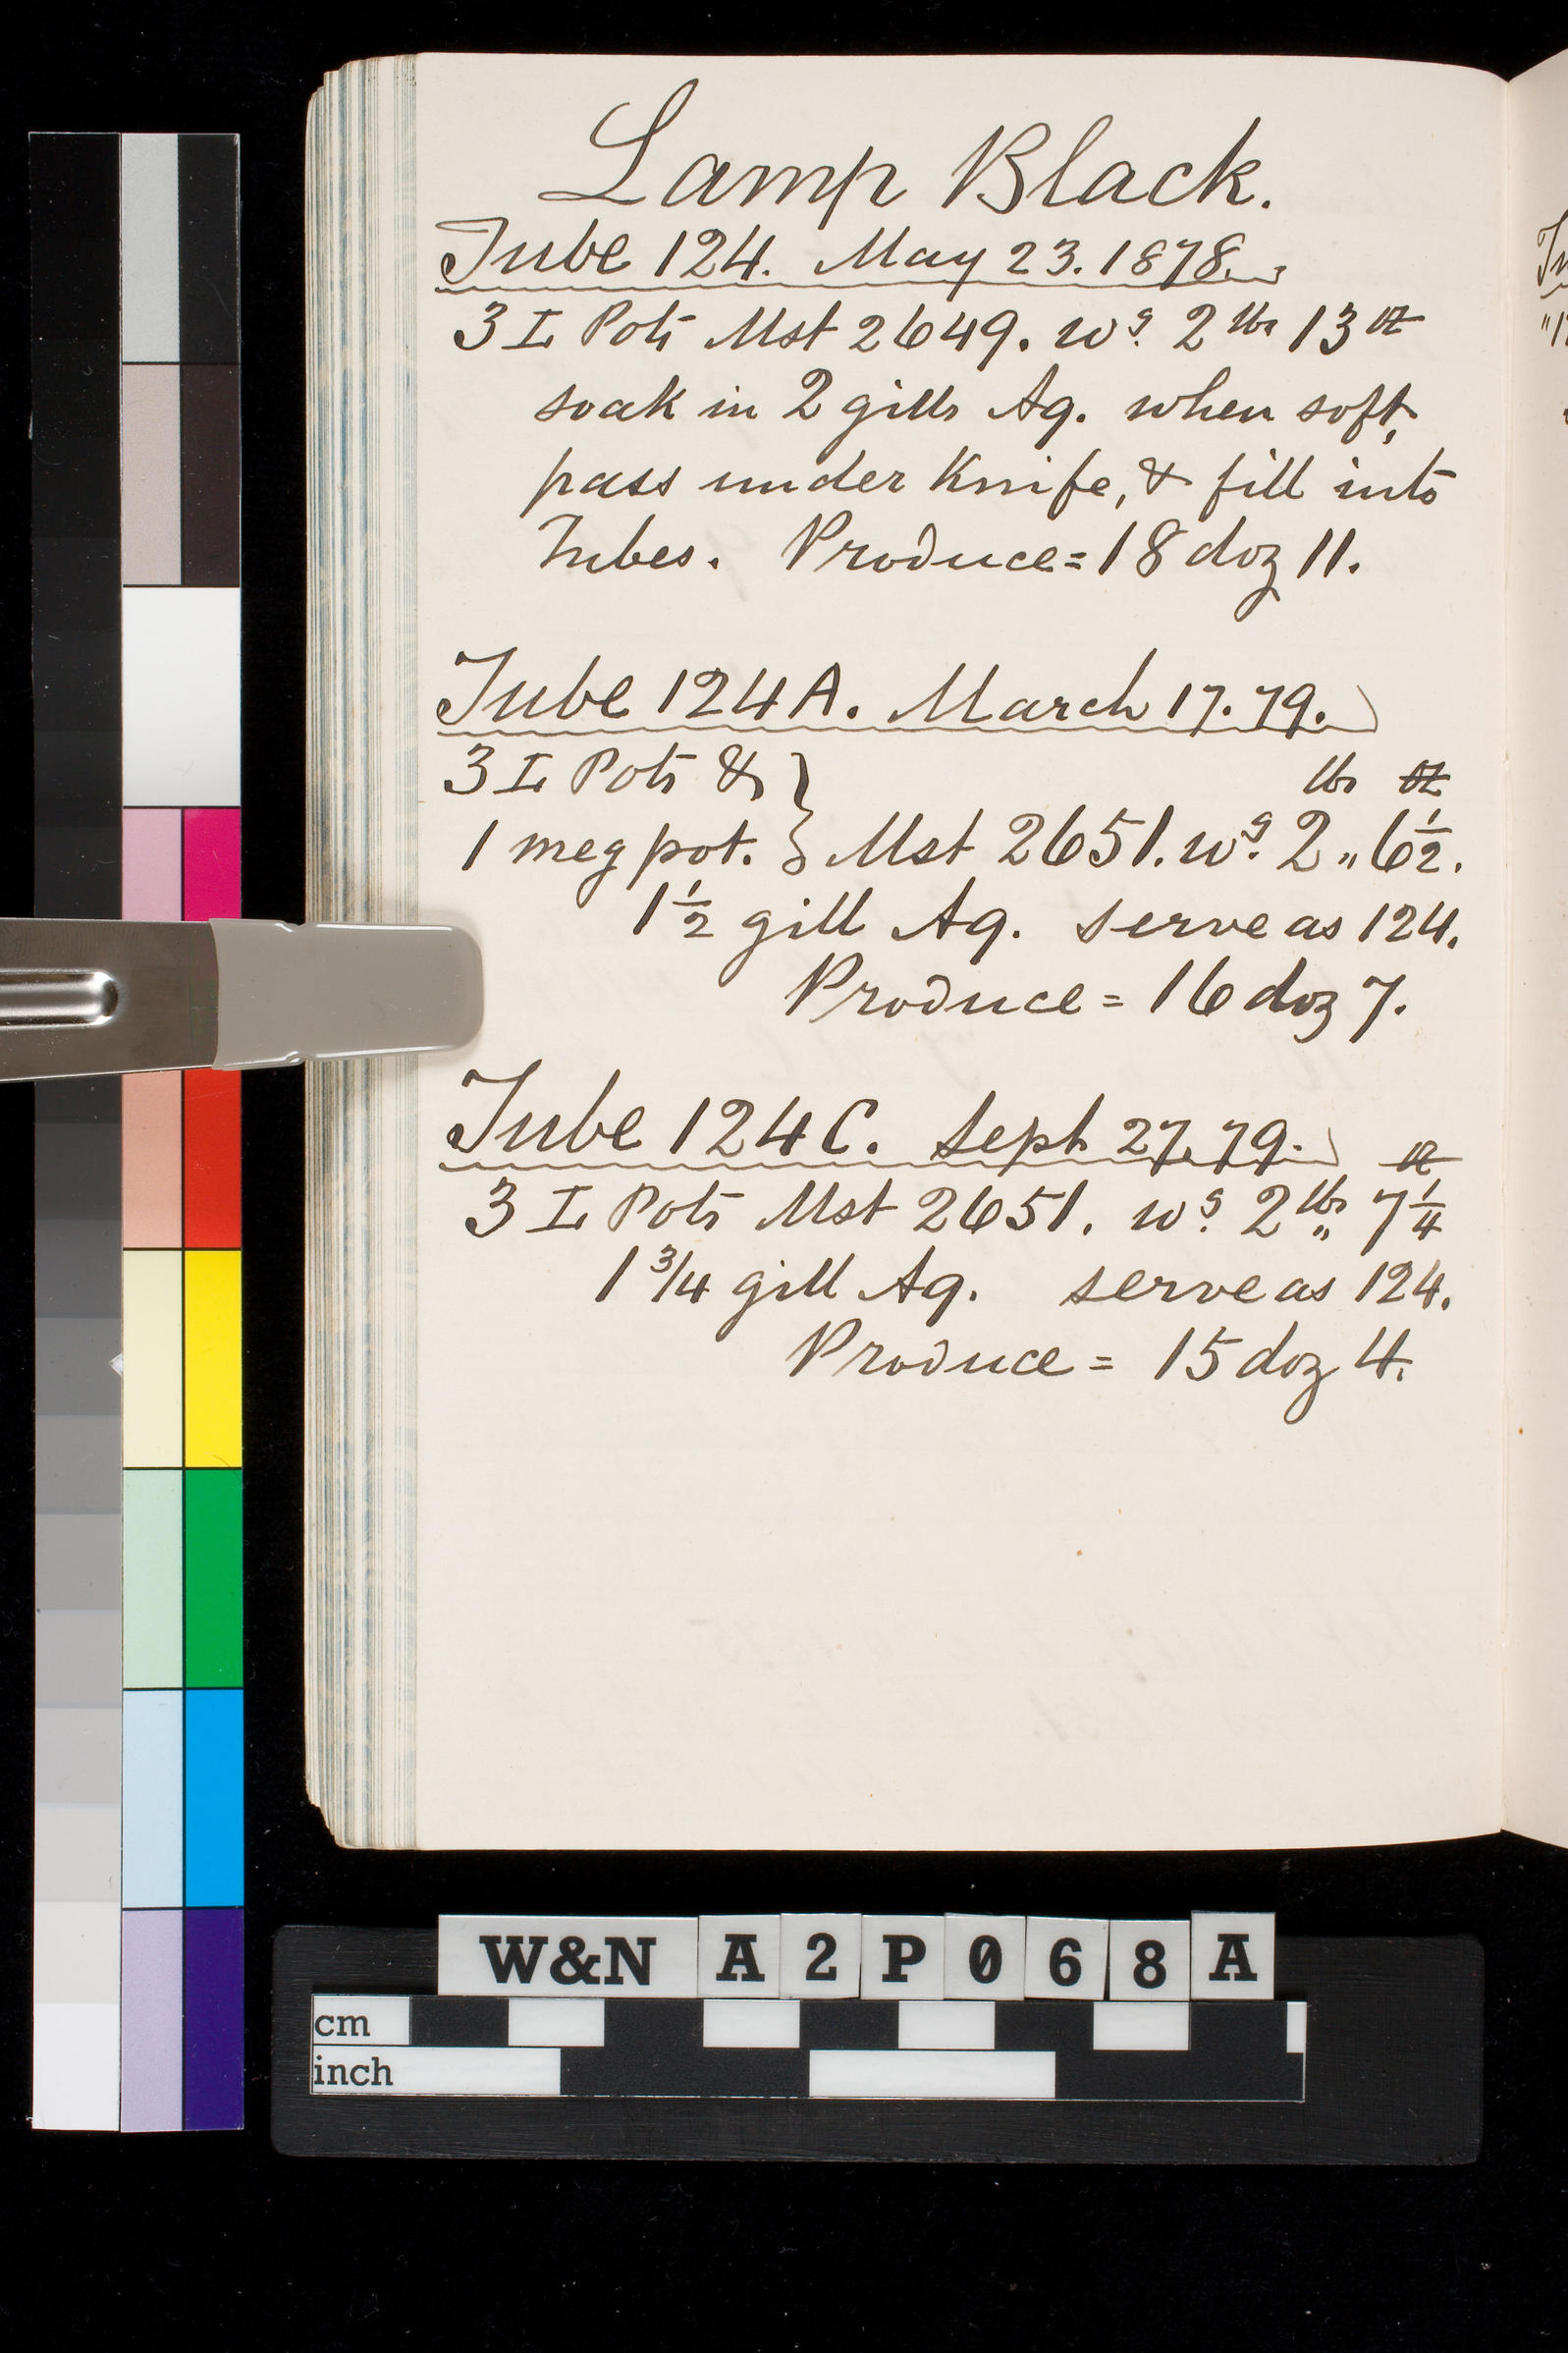 Lamp Black.
Tube 124. May 23. 1878.
3 I Pots Mst 2649. wg. 2 lbs 13 oz
soak in 2 gills Aq. when soft,
pass under Knife, & fill into
Tubes. Produce = 18 doz 11.
Tube 124 A. March 17. 79.
3 I Pots & } lbs oz
1 meg pot. } Mst 2651. wg. 2 „ 6 1/2.
1 1/2 gill Aq. serve as 124.
Produce = 16 doz 7.
Tube 124 C. Sept 27. 79. oz
3 I Pots Mst 2651. wg. 2 lbs „ 7 1/4
1 3/4 gill Aq. serve as 124.
Produce = 15 doz 4.
W&N A2P068A
cm
inch